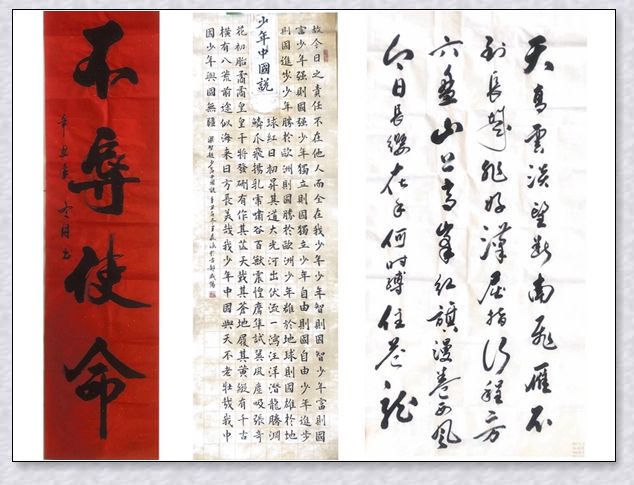 不辱使命
少年中國說
故今日之責任不在他人而全在我少年少年智則國智少年富則國
富少年强則國强少年獨立則國獨立少年自由則國自由少年進步
則國進步少年勝於歐洲則國勝於歐洲少年雄於地球則國雄於地
球紅日初昇其道大光河出伏流一瀉汪洋潛龍騰淵
鱗爪飛揚乳虎嘯谷百獸震惶鷹隼試翼風塵吸張奇
花初胎矞矞皇皇干將發硎有作其芒天戴其蒼地履其黃縱有千古
橫有八荒前途似海来日方長美哉我少年中國與天不老壯哉我中
國少年與國無疆 梁啓超少年中國說
天高雲淡望斷南飛雁不
到長城非好漢屈指行程二万
六盤山上高峰紅旗漫卷西風
今日長纓在手何時縛住蒼龍